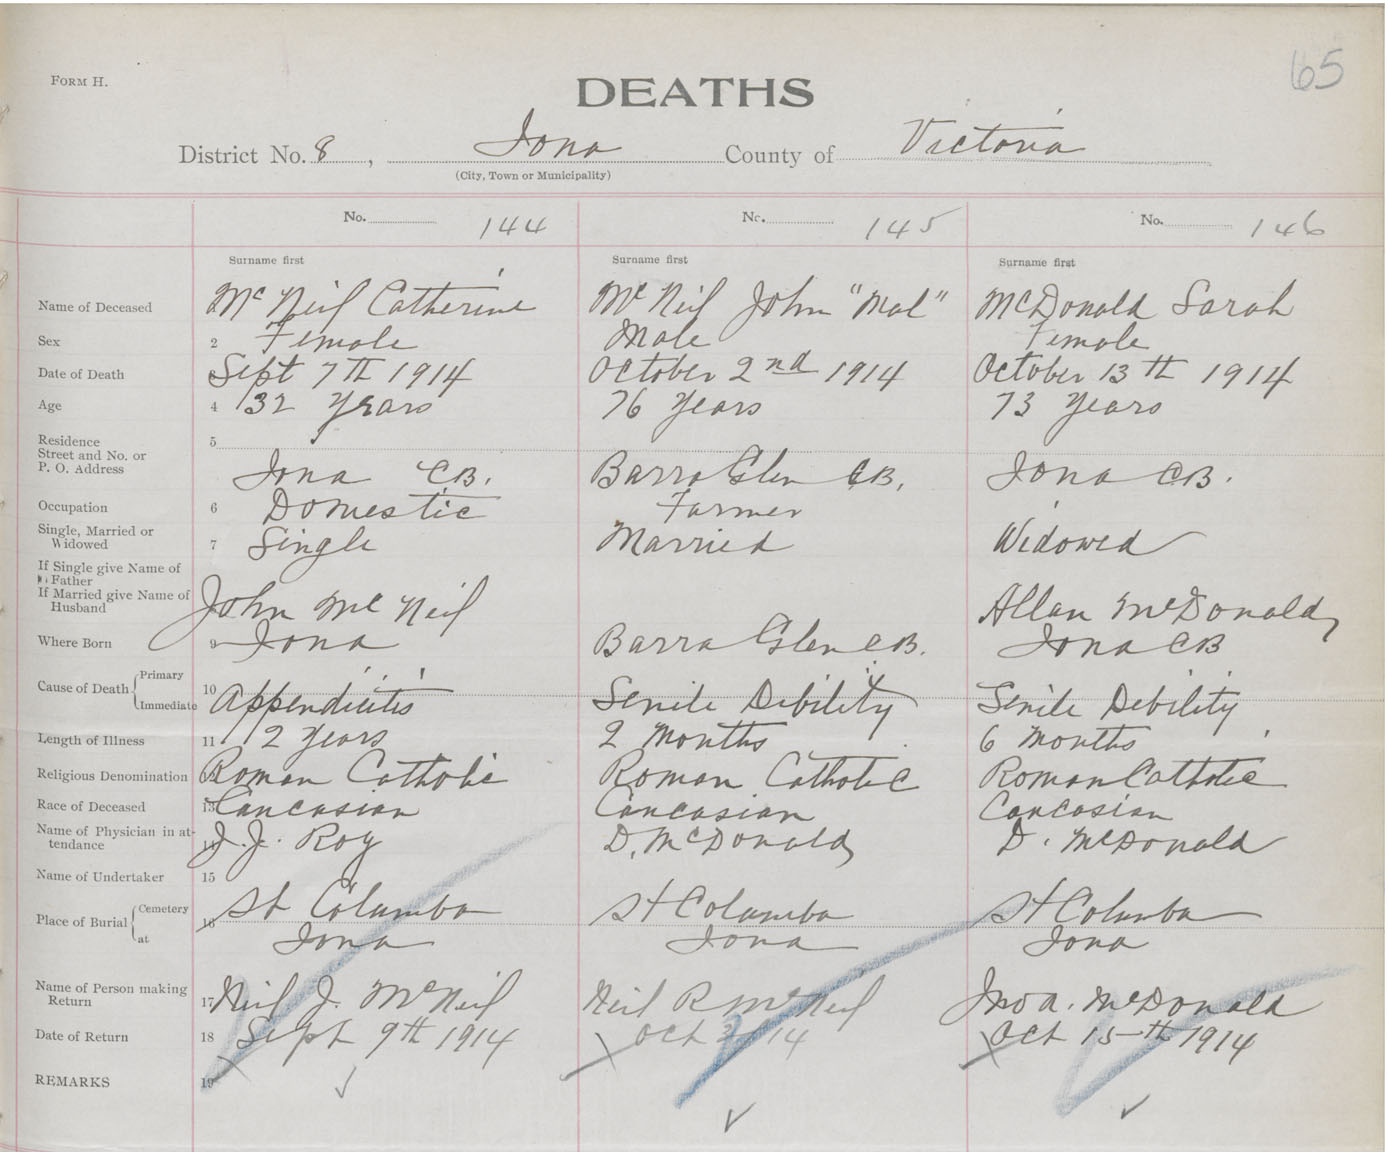 65
FORM H.
DEATHS
District No. 8, Iona County of Victoria
(City, Town or Municipality)
No. 144 No. 145 No. 146
Surname first Surname first Surname first
Name of Deceased McNeil Catherine McNeil John "Mal" McDonald Sarah
Sex 2 Female Male Female
Date of Death Sept 7th 1914 October 2nd 1914 October 13th 1914
Age 4 32 years 76 years 73 years
Residence 5
Street and No. or
P. O. Address Iona CB. Barra Glen CB. Iona CB.
Occupation 6 Domestic Farmer
Single, Married or
Widowed 7 Single Married Widowed
If Single give Name of
Father
If Married give Name of
Husband John McNeil Allan McDonald
Where Born 9 Iona Barra Glen CB. Iona CB
Cause of Death Primary
Immediate 10 Appendicitis Senile Debility Senile Debility
Length of Illness 11 2 years 2 months 6 months
Religious Denomination Roman Catholic Roman Catholic Roman Catholic
Race of Deceased 13 Cancasian Cancasian Cancasian
Name of Physician in at-
tendance 14 J. J. Roy D. McDonald D. McDonald
Name of Undertaker 15
Place of Burial Cemetery 16 St Columba St Columba St Columba
at Iona Iona Iona
Name of Person making
Return 17 Neil J. McNeil Neil R McNeil Jno A. McDonald
Date of Return 18 Sept 9th 1914 Oct 14 Oct 15th 1914
REMARKS 19